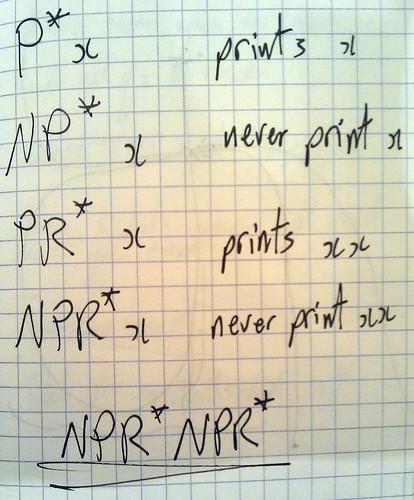 P* x prints x
NP* x never print x
PR* x prints xx
NPR* x never print xx
NPR* NPR*